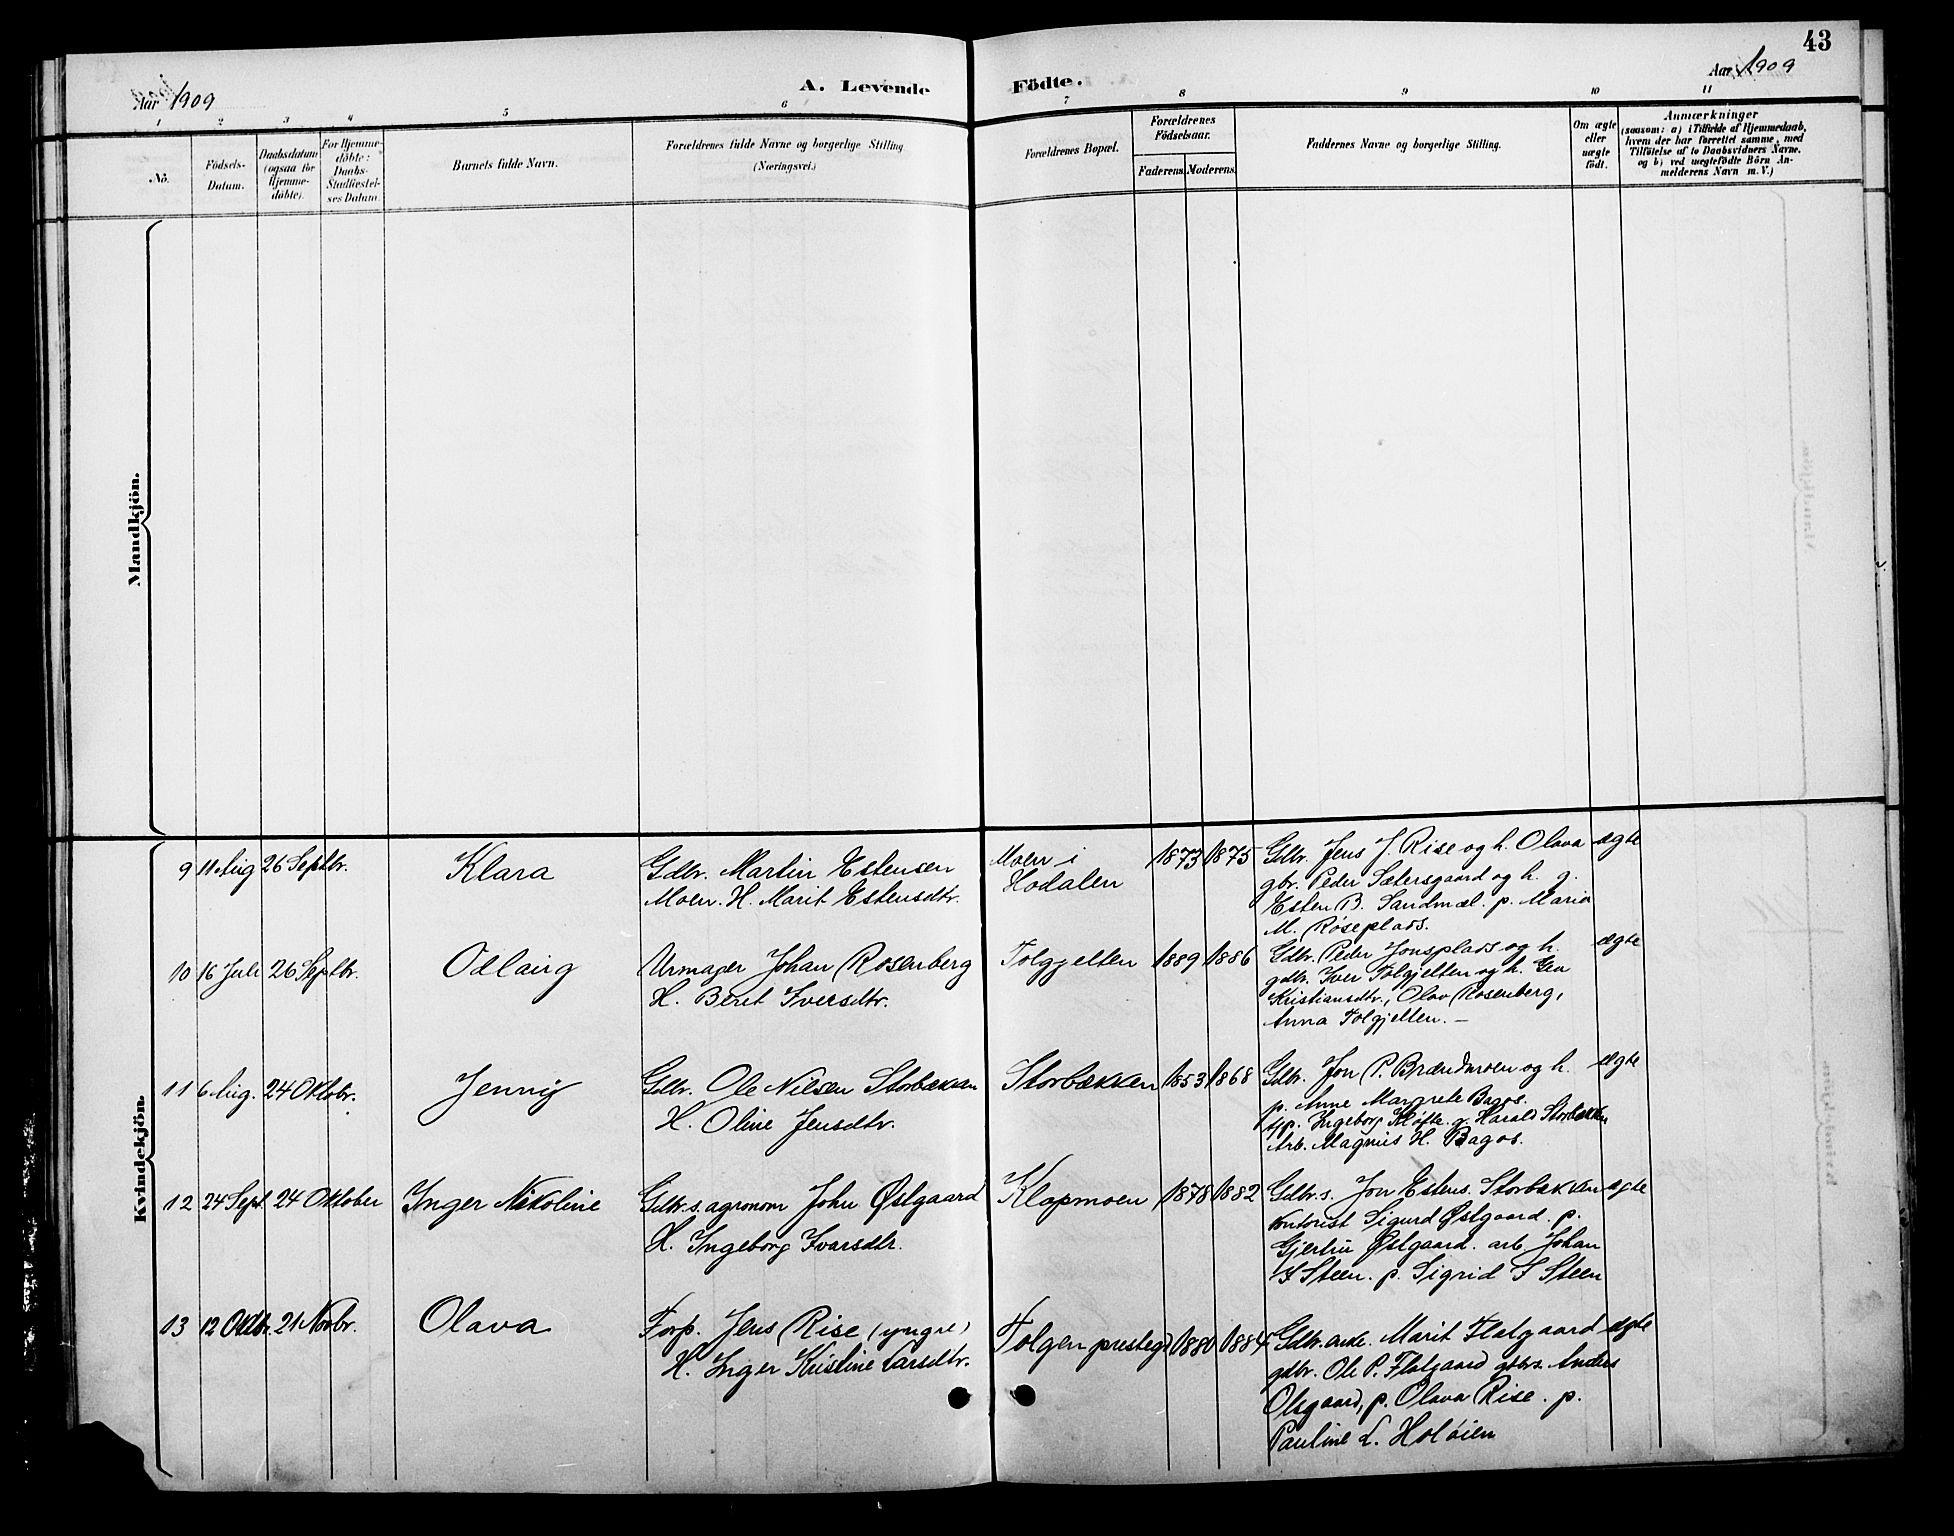 43
Aar 1909
A. Levende Födte.
Aar 1909
1 2 3 4 5 6 7 8 9 10 11
No.
Födsels-Datum.
Daabsdatum (ogsaa for Hjemme-döbte).
For Hjemme-döbte: Daabs-Stadfæstel-ses Datum.
Barnets fulde Navn.
Forældrenes fulde Navne og borgerlige Stilling
(Næringsvei.)
Forældrenes Bopæl.
Forældrenes Födselsaar.
Faderens. Moderens.
Faddernes Navne og borgerlige Stilling.
Om ægte eller uægte födt.
Anmærkninger
(saasom: a) i Tilfælde af Hjemmedaab,
hvem der har forrettet samme, med
Tilföielse af to Daabsvidners Navne.
og b) ved uægtefödte Börn An-
melderens Navn m. V.)
Mandkjön.
Kvindekjön.
9 11 Aug 26 Septbr. Klara Gdbr. Martin Estensen Moen i 1873 1875 Gdbr. Jens J. Rise og h. Olava ægte
Moen. H. Marit Estensdtr. Hodalen gbr. Peder Sætersgaard og h. g.
Esten B. Sandmæl. p. Maria
M. Røseplads.
10 16 Juli 26 Septbr. Odlaug Urmager Johan Rosenberg Tolgjelten 1889 1886 Gdbr. Peder Jonsplads og h. ægte
H. Beret Iversdtr. gdbr. Iver Tolgjelten og h.
Kristiansdtr., Olav Rosenberg,
Anna Tolgjelten. –
11 6 Aug. 24 Oktobr. Jenny Gdbr. Ole Nilsen Storbækken Storbækken 1853 1868 Gdbr. Jon P. Brændmoen og h. ægte
H. Oline Jensdtr. p. Anne Margrete Bagos.
tjp. Ingeborg Kløfte. g. Harald Storbækken
Arb. Magnus H. Bagos.
12 24 Sept. 24 Oktober Inger Nikoline Gdbr.s. agronom John Østgaard Klopmoen 1878 1882 Gdbr.s. Jon Estens. Storbækken ægte
H. Ingeborg Ivarsdtr. Kontorist Sigurd Østgaard. p.
Gjertru Østgaard. arb. Johan
I Steen. p. Sigrid I Steen
13 12 Oktbr. 21 Novbr. Olava Forp. Jens Rise (yngre) Tolgen presteg 1880 1884 Gdbr. enke. Marit Flatgaard ægte
H. Inger Kristine Larsdtr. gdbr. Ole P. Flatgaard gdbrs. Anders
Olsgaard, p. Olava Rise. p.
Pauline L. Holøien